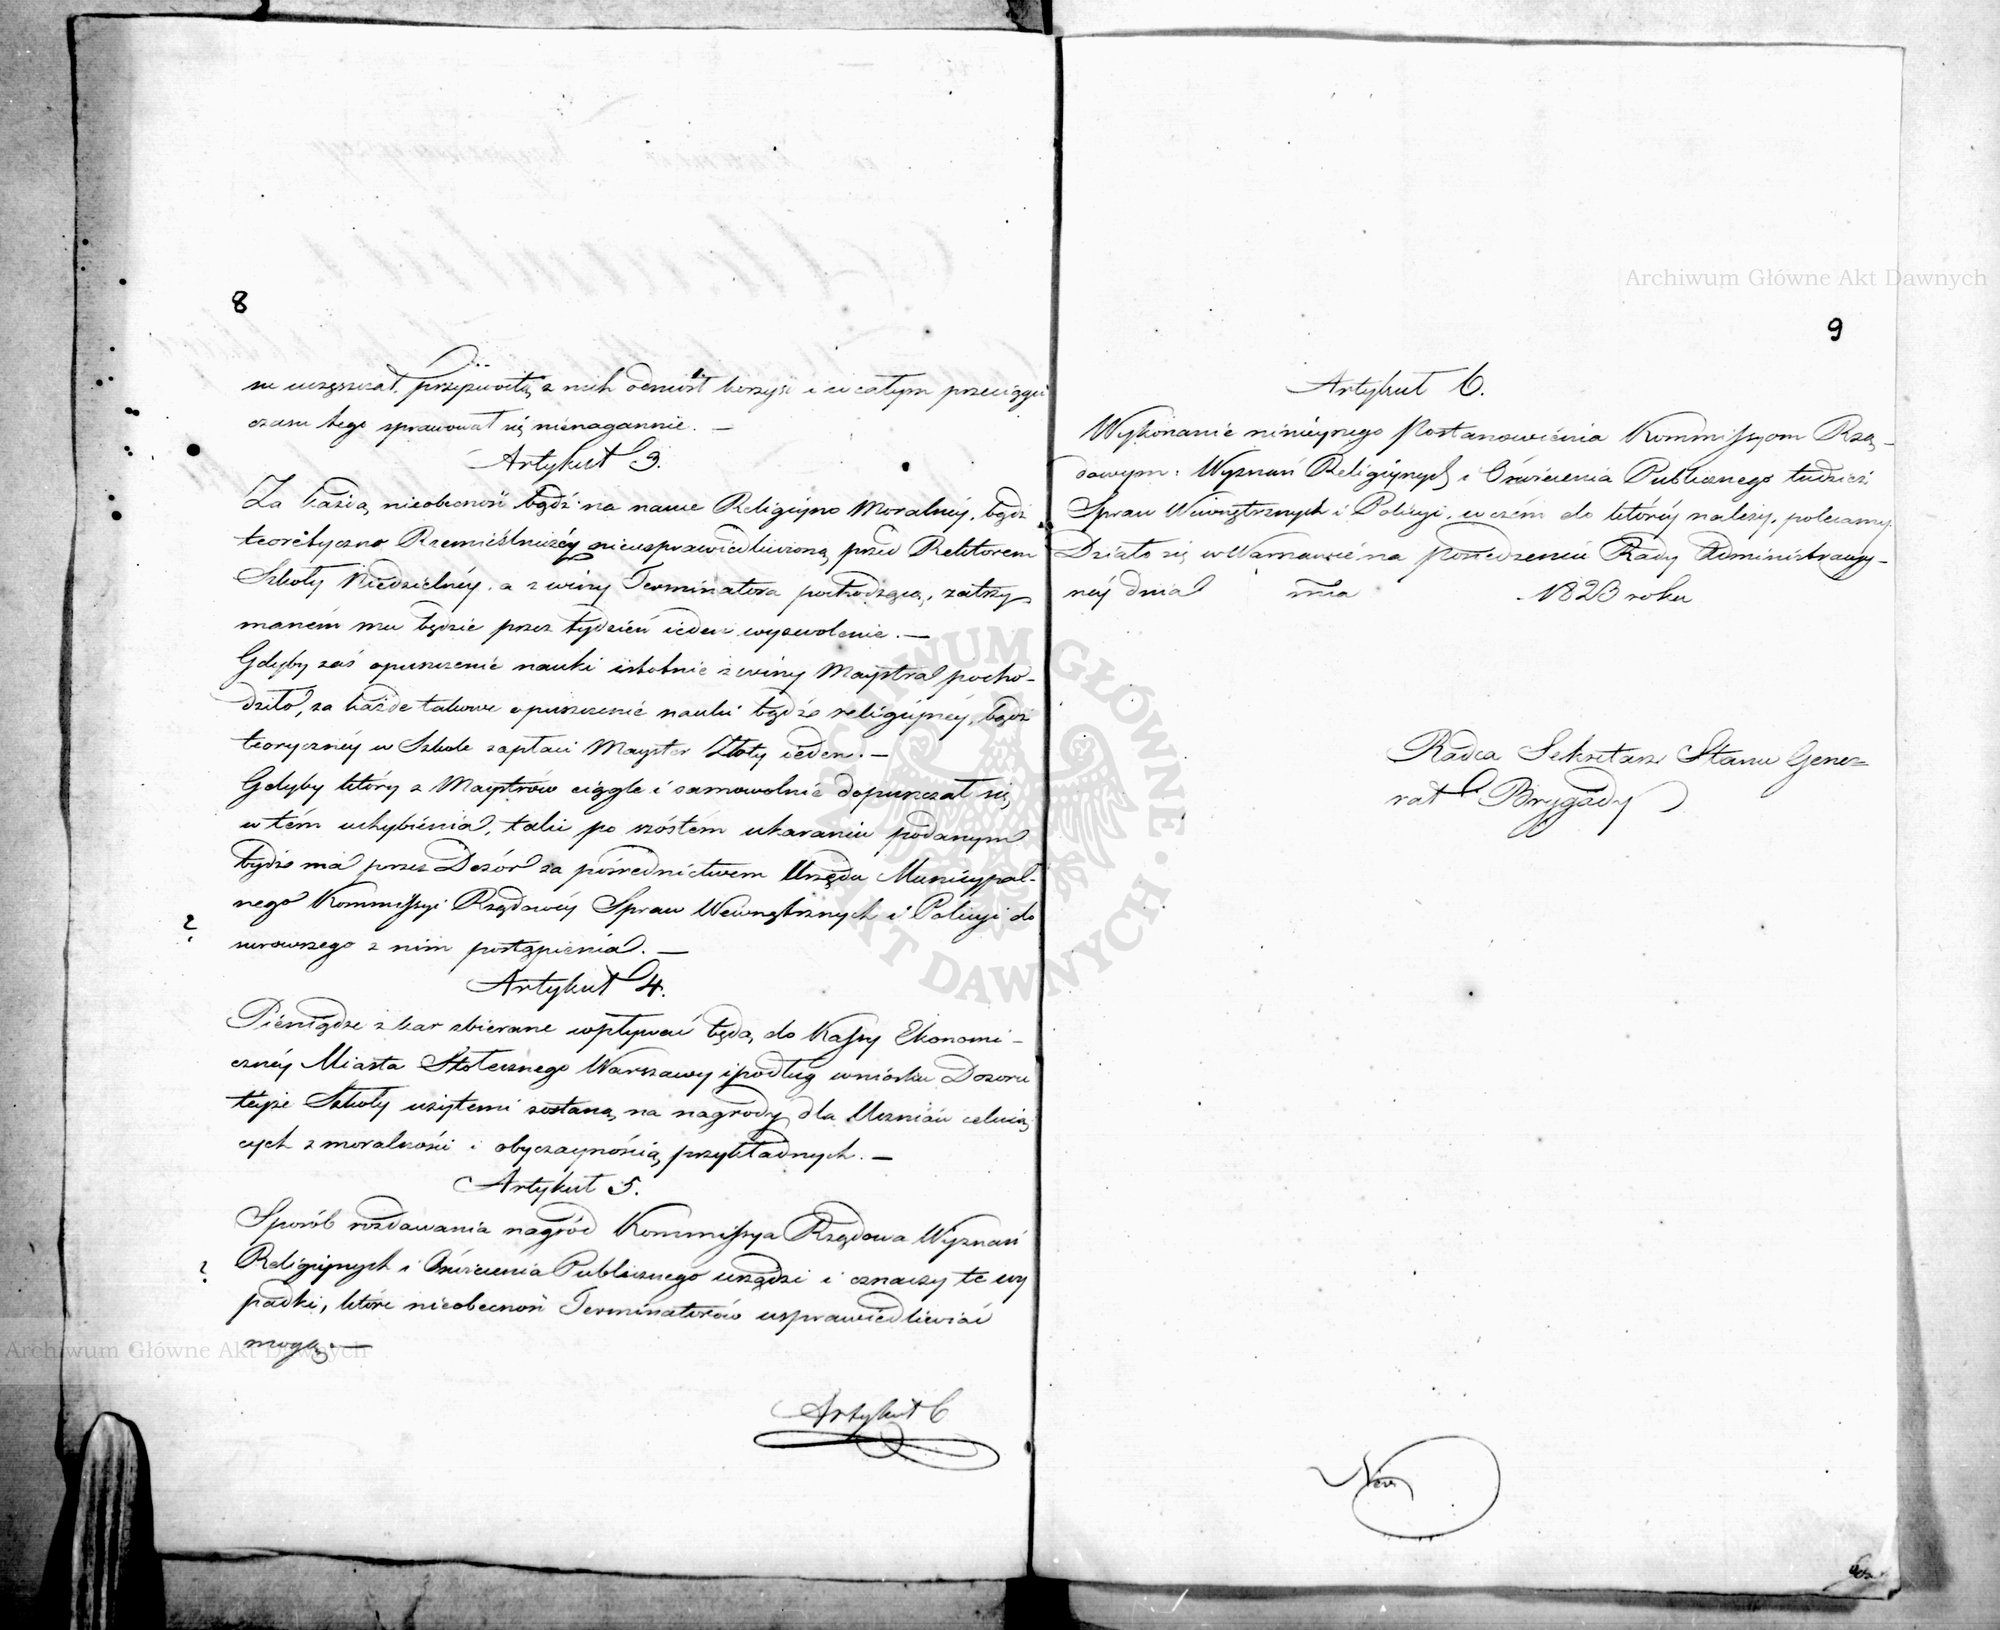 8
su uczęszczał, przyzwoitą z nich odniósł korzyść i w całym przeciągu
czasu tego sprawował się nienagannie. —
Artykuł 3.
Za każdą nieobecność bądź na nauce Religijno Moralnéy, bądź
teoretyczno Rzemieślniczéy nieusprawiedliwioną przed Rektorem
Szkoły Niedzielnéy, a z winy Terminatora pochodzącą, zatrzy
maném mu będzie przez tydzień ieden wyzwolenie. —
Gdyby zaś opuszczenie nauki istotnie z winy Maystra pocho-
dziło, za każde takowe opuszczenie nauki bądź religijnéy, bądź
teorycznéy w Szkole zapłaci Mayster Złoty ieden. —
Gdyby który z Maystrów ciągle i samowolnie dopuszczał się
w tém uchybienia, taki po szóstém ukaraniu podanym
będzie ma przez Dozór za pośrednictwem Urzędu Municypal-
nego Kommissyi Rządowéy Spraw Wewnętrznych i Policyi do
?
surowszego z nim postąpienia. —
Artykuł 4.
Pieniądze z kar zbierane wpływać będą do Kassy Ekonomi-
cznéy Miasta Stołecznego Warszawy i podług wniosku Dozoru
teyże Szkoły użytemi zostaną na nagrody dla Uczniów celuią
cych z moralności i obyczaynością przykładnych. —
Artykuł 5.
Sposób rozdawania nagród Kommissya Rządowa Wyznań
?
Religijnych i Oświecenia Publicznego urządzi i oznaczy te wy
padki, które nieobecność Terminatorów usprawiedliwiać
mogą. —
Artykuł 6
9
Artykuł 6.
Wykonanie ninieyszego Postanowienia Kommissyom Rzą-
dowym: Wyznań Religijnych i Oświecenia Publicznego tudzież
Spraw Wewnętrznych i Policyi, w czém do któréy należy, polecamy.
Działo się w Warszawie na Posiedzeniu Rady Administracyy-
néy dnia mca 1823 roku
Radca Sekretarz Stanu Gene-
rał Brygady
Archiwum Główne Akt Dawnych
Archiwum Główne Akt Dawnych
ARCHIWUM GŁÓWNE AKT DAWNYCH